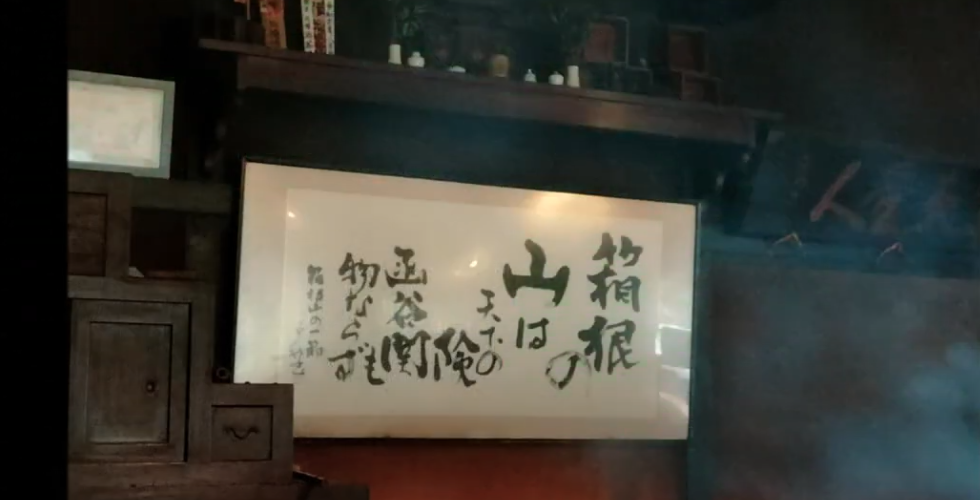 箱根
の
山は
天下の
険
函谷関も
物ならず
箱根山の一節